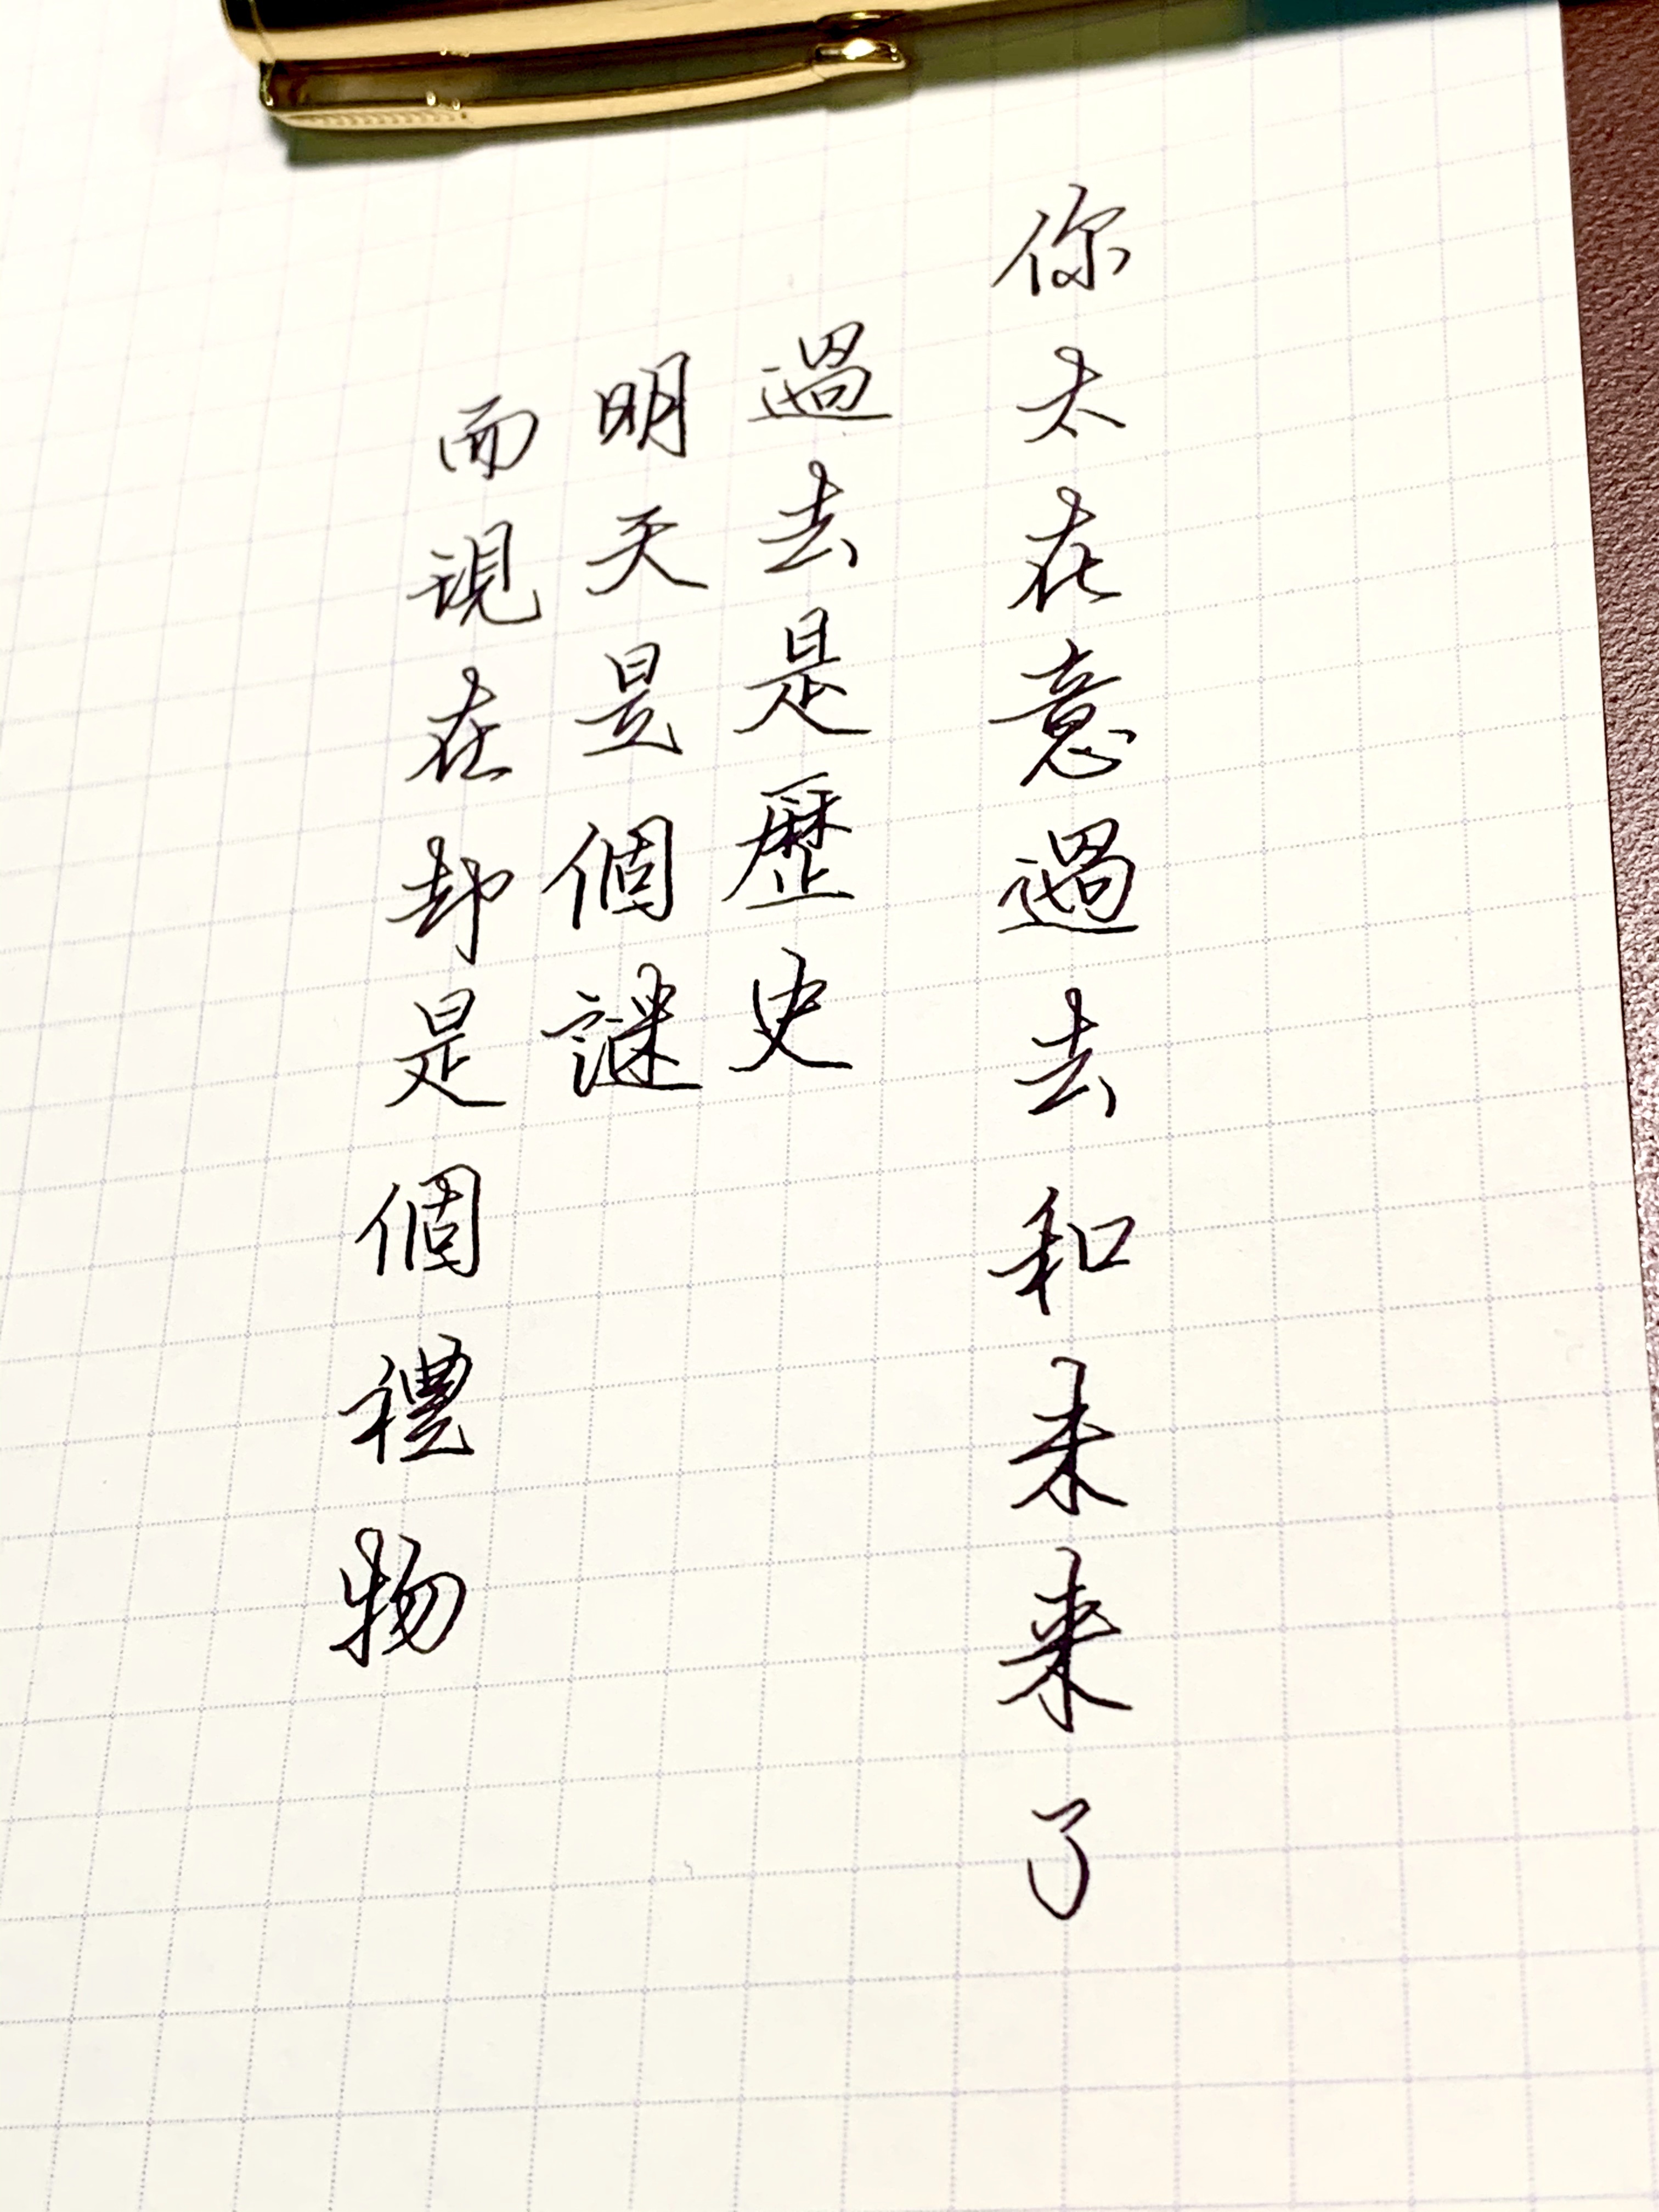 你太在意過去和未来了
過去是歷史
明天是個謎
而現在却是個禮物